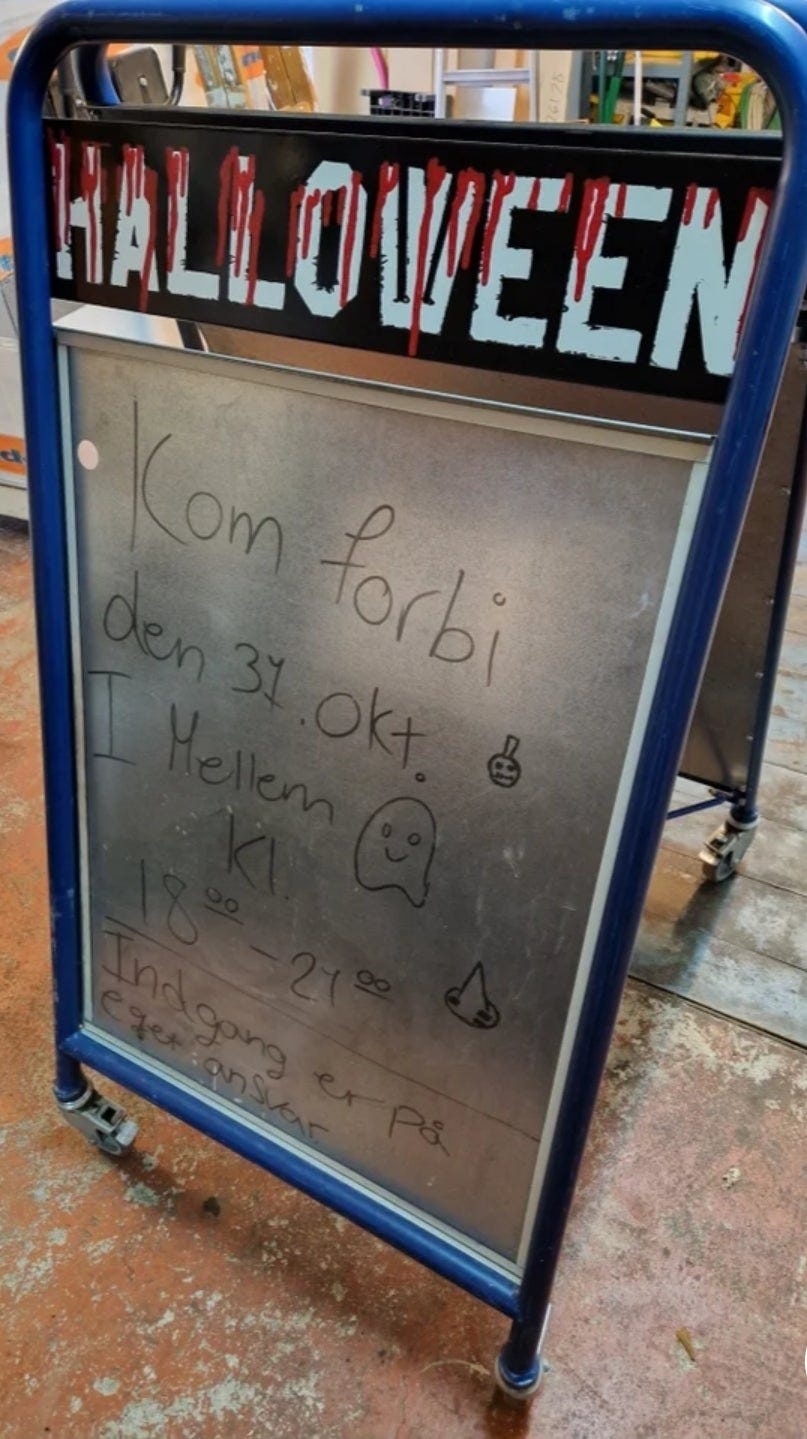 HALLOWEEN
Kom forbi
den 31. Okt.
I Mellem
Kl.
18⁰⁰ - 21⁰⁰
Indgang er på
eget ansvar